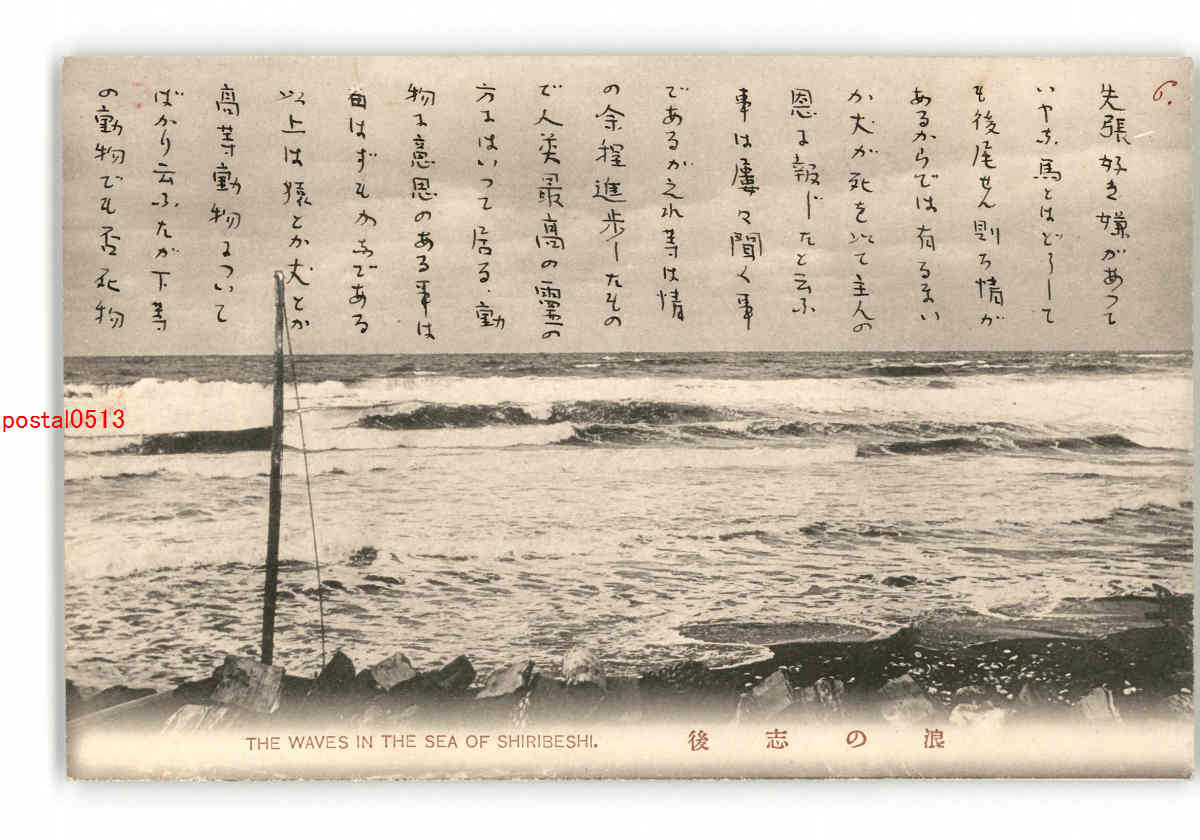 6.
失張好き嫌があつて
いやな馬とはどうして
も後尾せん則ち情が
あるからでは有るまい
か犬が死を以て主人の
恩に報じたと云ふ
事は屢々聞く事
であるが之れ等は情
の余程進歩したもの
で人英最高の霊の
方にはいつて居る、動
物に意思のある事は
自はずもがなである
以上は猿とか犬とか
高等動物について
ばかり云ふたが下等
の動物でも否死物
postal0513
THE WAVES IN THE SEA OF SHIRIBESHI.
後志の浪